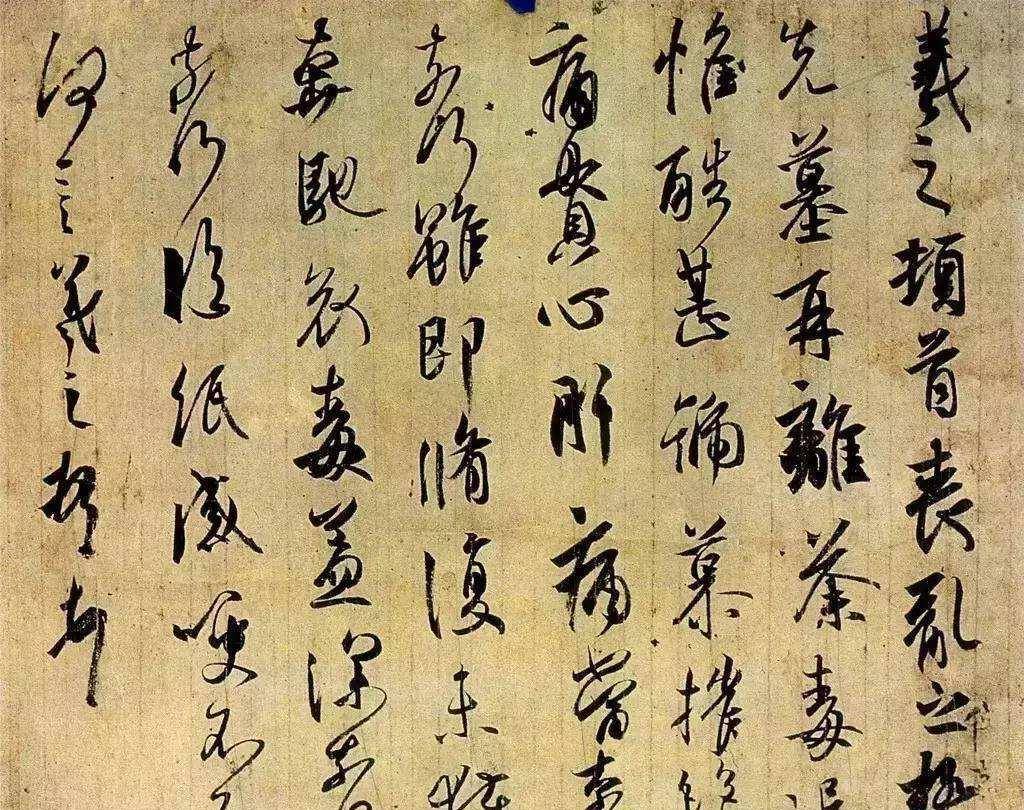 羲之頓首喪亂之極
先墓再離荼毒追
惟酷甚號慕摧絕
痛貫心肝痛當奈
奈何雖即脩復未獲
奔馳哀毒益深奈
奈何臨紙感哽不
何言羲之頓首頓首